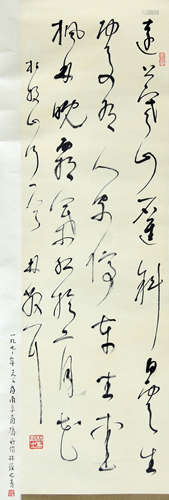 遠上寒山石徑斜白雲生
處有人家停車坐愛
楓林晚霜葉紅於二月花
杜牧山行一首 林散耳
一九七一年